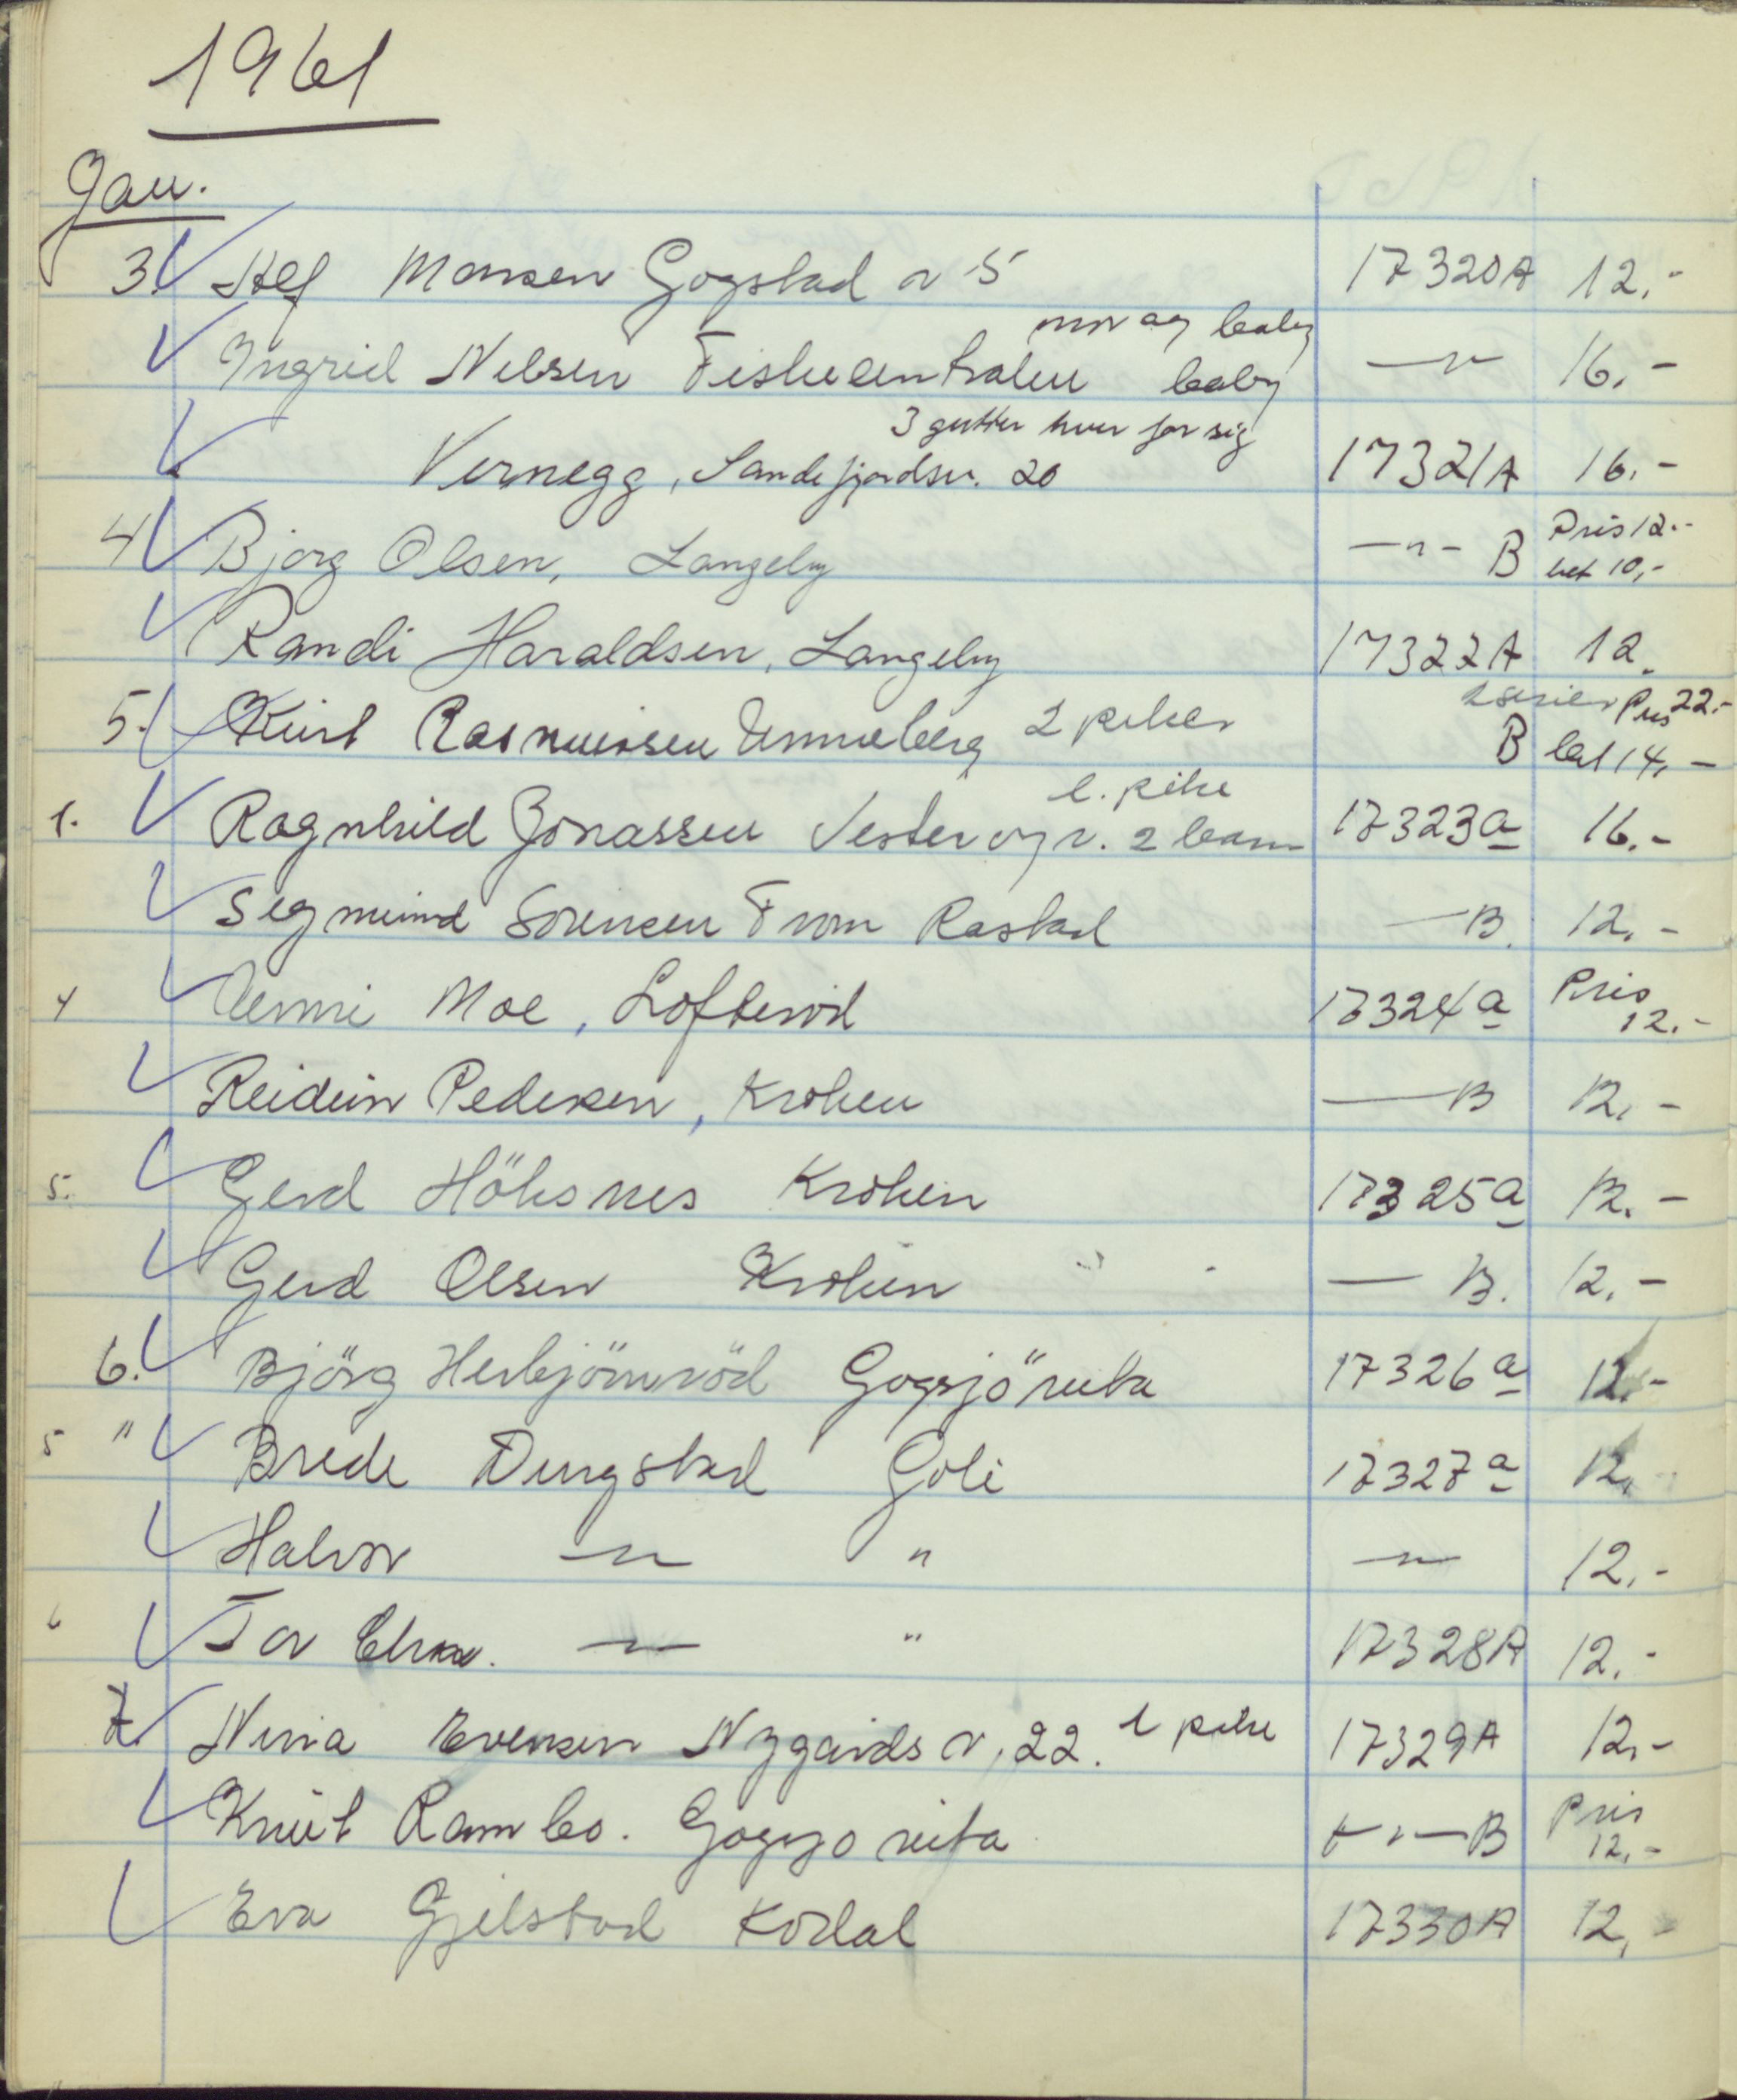 1961
Jan.
3. Alf Monsen Gogstad v 5 17320A 12.-
mor og baby
Ingrid Nilsen Fiskecentralen baby —"— 16.-
3 gutter hver for sig
Vernegg, Sandefjordsv. 20 17321A 16.-
4 Bjorg Olsen, Langeby —"— B Pris 12.- bet 10,-
Randi Haraldsen, Langeby 17322A 12.
5. Kurt Rasmussen Unneberg 2 piker 2 serier Pris 22.- B bet 14,-
l. pike
1. Ragnhild Jonassen Vesterøy v. 2 barn 17323a 16.-
Sigmund Sørensen Fron Rastad — B. 12.-
4 Aenni Moe, Løfterød 17324a Pris 12.-
Reidun Pedersen, Kroken — B 12,-
5. Gerd Höksnes Kroken 17325a 12.-
Gerd Olsen Kroken — B. 12.-
6. Björg Herbjörnröd Gogsjöruta 17326a 12.-
5 " Brede Dengstad Goli 17327a 12.
Halvor —"— " —"— 12.-
6 Tor —"— " 17328A 12.-
7. Nina Evensen Nygårds v, 22. 1 pike 17329A 12,-
Knut Rambo. Gogsjoruta —"— B Pris 12,-
Eva Gjelstad Kodal 17330A 12,-